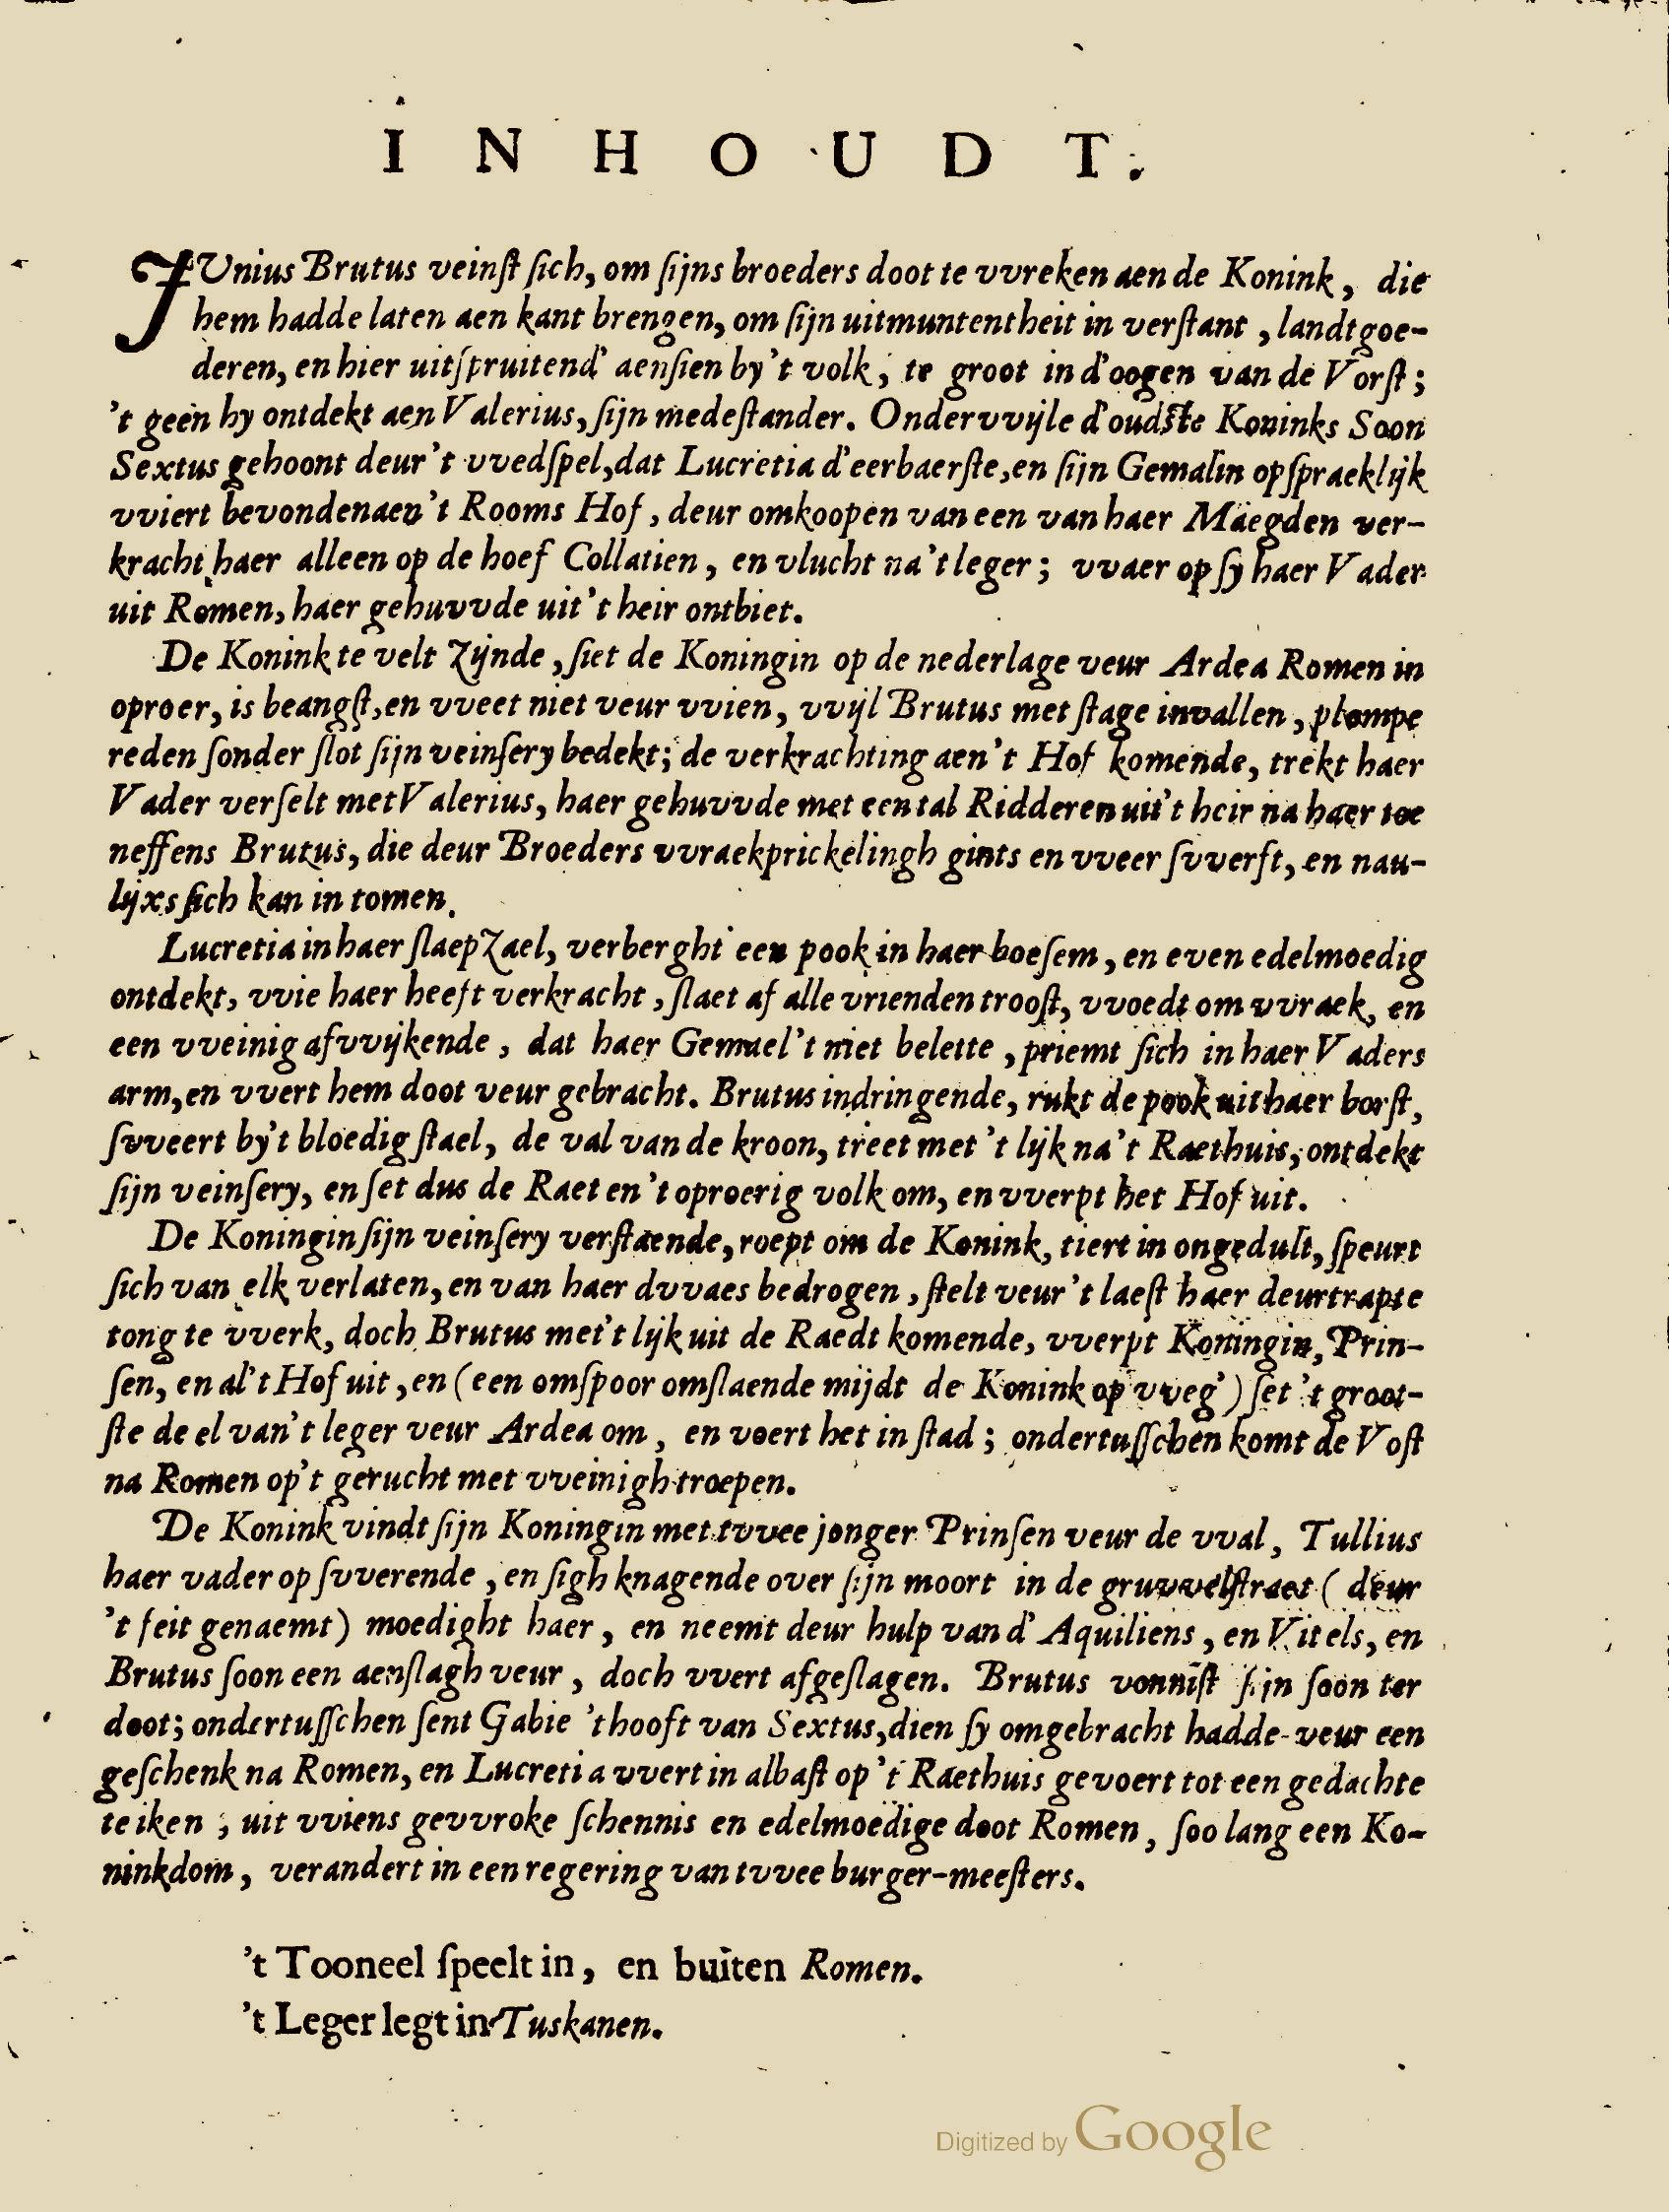 INHOUDT.
JUnius Brutus veinſt ſich, om ſijns broeders doot te vvreken aen de Konink, die
hem hadde laten aen kant brengen, om ſijn uitmuntentheit in verſtant, landtgoe-
deren, en hier uitſpruitend' aenſien by 't volk, te groot in d'oogen van de Vorſt;
't geen hy ontdekt aen Valerius, ſijn medeſtander. Ondervvijle d'oudſte Koninks Soon
Sextus gehoont deur 't vvedſpel, dat Lucretia d'eerbaerſte, en ſijn Gemalin opſpraeklijk
vviert bevonden aen 't Rooms Hof, deur omkoopen van een van haer Maegden ver-
kracht haer alleen op de hoef Collatien, en vlucht na 't leger; vvaer op ſy haer Vader
uit Romen, haer gehuvvde uit 't heir ontbiet.
De Konink te velt zijnde, ſiet de Koningin op de nederlage veur Ardea Romen in
oproer, is beangſt, en vveet niet veur vvien, vvijl Brutus met ſtage invallen, plompe
reden ſonder ſlot ſijn veinſery bedekt; de verkrachting aen 't Hof komende, trekt haer
Vader verſelt met Valerius, haer gehuvvde met een tal Ridderen uit 't heir na haer toe
neffens Brutus, die deur Broeders vvraekprickelingh gints en vveer ſvverft, en nau-
lijxs ſich kan in tomen.
Lucretia in haer ſlaepzael, verberght een pook in haer boeſem, en even edelmoedig
ontdekt, vvie haer heeft verkracht, ſlaet af alle vrienden trooſt, vvoedt om vvraek, en
een vveinig afvvijkende, dat haer Gemael 't niet belette, priemt ſich in haer Vaders
arm, en vvert hem doot veur gebracht. Brutus indringende, rukt de pook uit haer borſt,
ſvveert by't bloedig ſtael, de val van de kroon, treet met 't lijk na 't Raethuis, ontdekt
ſijn veinſery, en ſet dus de Raet en 't oproerig volk om, en vverpt het Hof uit.
De Koningin ſijn veinſery verſtaende, roept om de Konink, tiert in ongedult, ſpeurt
ſich van elk verlaten, en van haer dvvaes bedrogen, ſtelt veur 't laeſt haer deurtrapte
tong te vverk, doch Brutus met 't lijk uit de Raedt komende, vverpt Koningin, Prin-
ſen, en al 't Hof uit, en (een omſpoor omſlaende mijdt de Konink op vveg') ſet 't groot-
ſte deel van 't leger veur Ardea om, en voert het in ſtad; ondertuſſchen komt de Voſt
na Romen op 't gerucht met vveinigh troepen.
De Konink vindt ſijn Koningin met tvvee jonger Prinſen veur de vval, Tullius
haer vader op ſvverende, en ſigh knagende over ſijn moort in de gruvvelſtraet (deur
't feit genaemt) moedight haer, en neemt deur hulp van d' Aquiliens, en Vitels, en
Brutus ſoon een aenſlagh veur, doch vvert afgeſlagen. Brutus vonniſt ſijn ſoon ter
doot; ondertuſſchen ſent Gabie 't hooft van Sextus, dien ſy omgebracht hadde veur een
geſchenk na Romen, en Lucretia vvert in albaſt op 't Raethuis gevoert tot een gedachte
teiken; uit vviens gevvroke ſchennis en edelmoedige doot Romen, ſoo lang een Ko-
ninkdom, verandert in een regering van tvvee burger-meeſters.
't Tooneel ſpeelt in, en buiten Romen.
't Leger legt in Tuskanen.
Digitized by Google